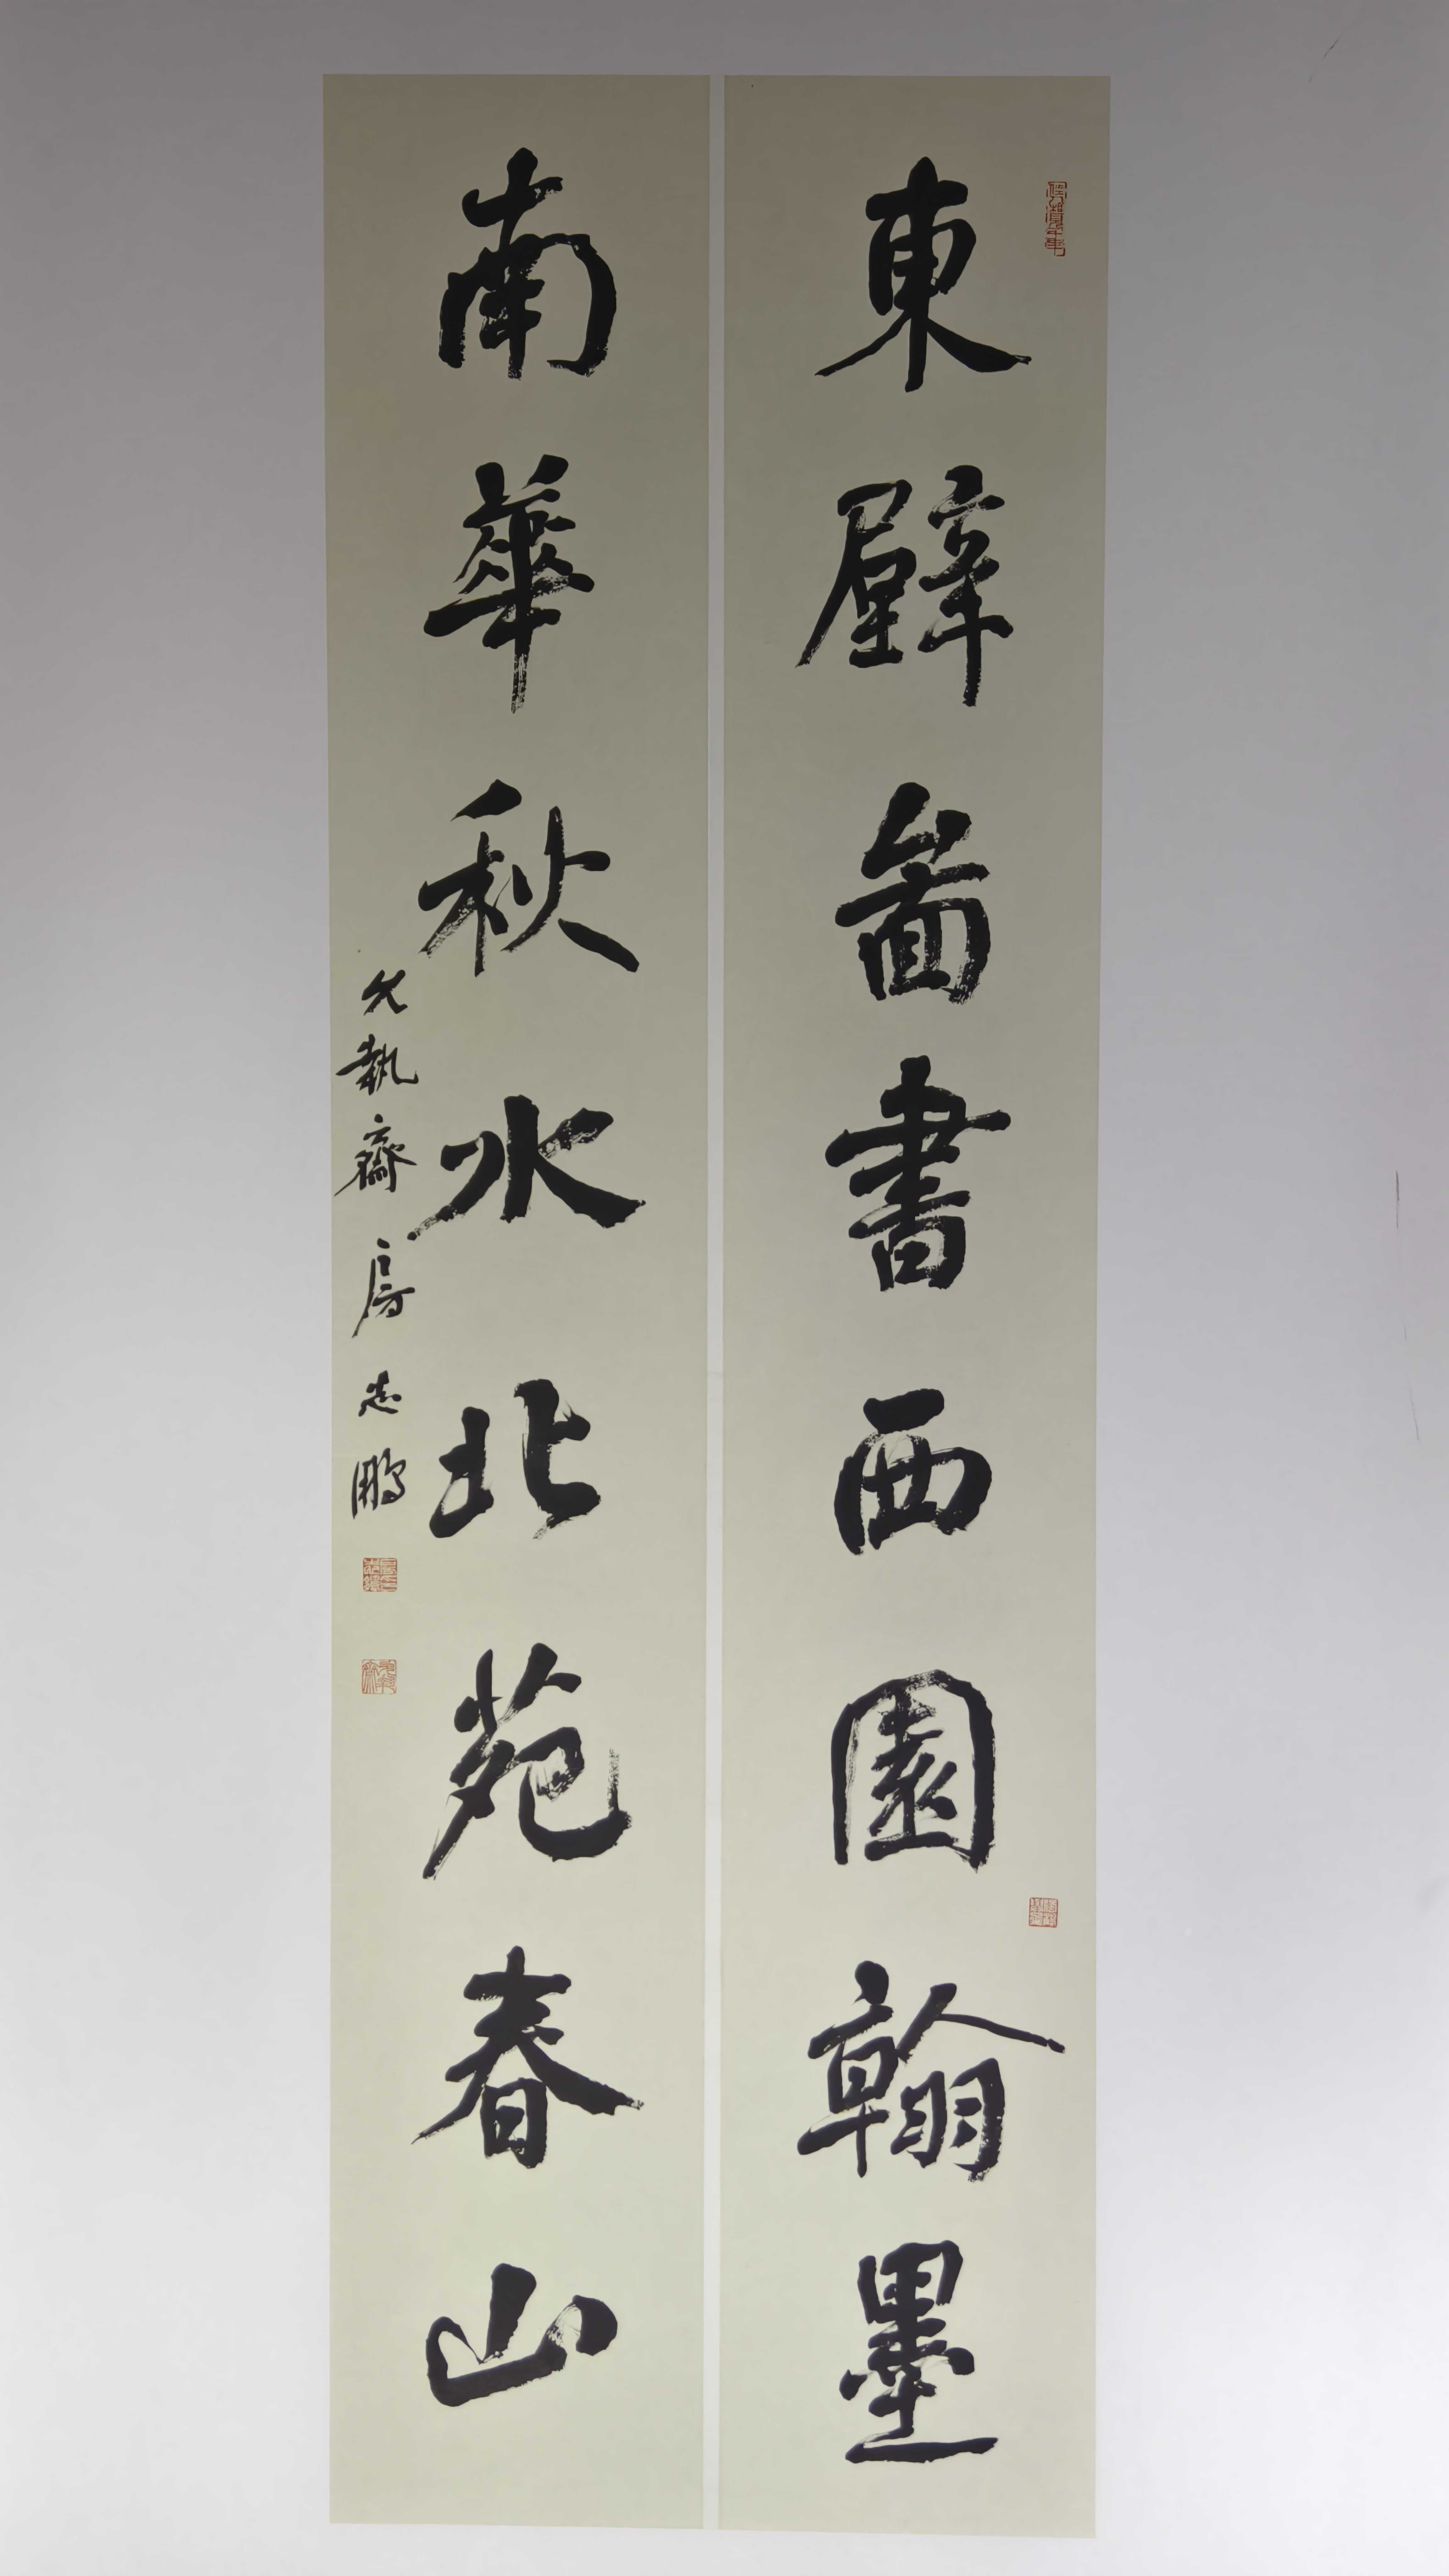 東壁圖書西園翰墨
南華秋水北苑春山
允執齋房志鵬